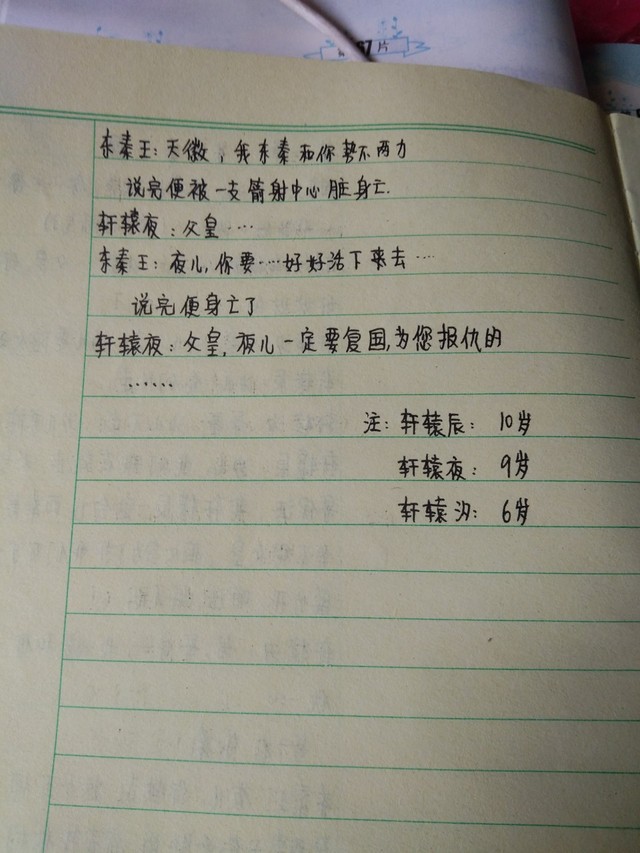 67片
东秦王：天徽，我东秦和你势不两力
说完便被一支箭射中心脏身亡.
轩辕夜：父皇……
东秦王：夜儿，你要……好好活下来去……
说完便身亡了
轩辕夜：父皇，夜儿一定要复国，为您报仇的
……
注：轩辕辰：10岁
轩辕夜：9岁
轩辕汐：6岁